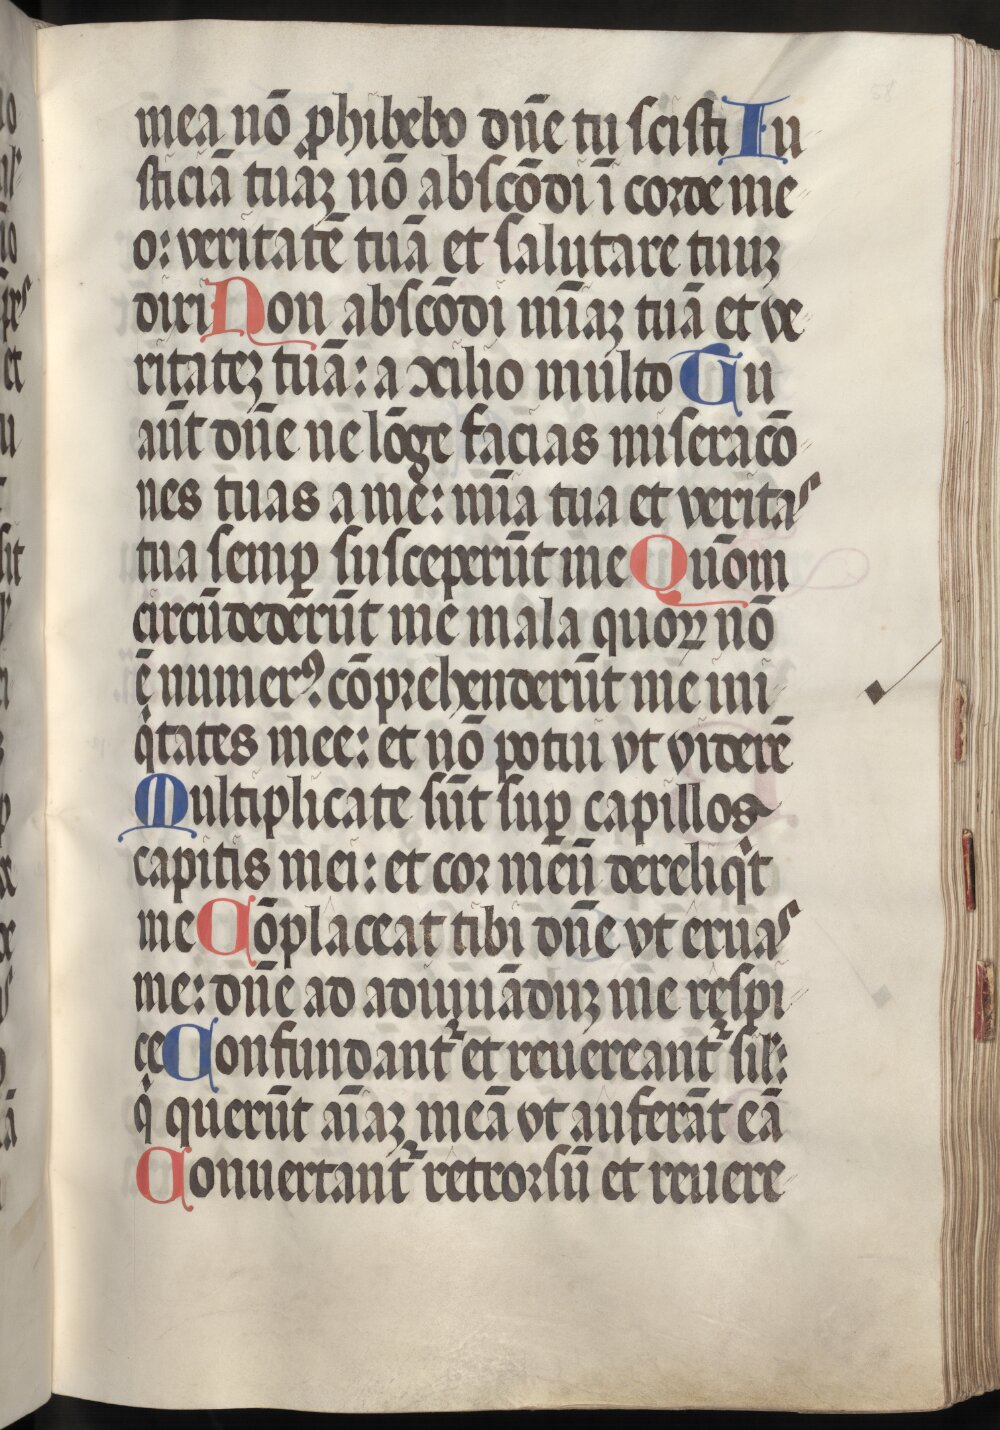 mea nō ꝓhibebo dn̄e tu scisti Iu
sticiā tuāꝫ nō abscōdi ī corde me
o: veritatē tuā et salutare tuuꝫ
dixi Non abscōdi mīaꝫ tuā et ve
ritateꝫ tuā: a ɔcilio multo Tu
aūt dn̄e ne lōge facias miseracō
nes tuas a me: mīa tua et veritas
tua semꝑ susceperūt me Qūom
circūdederūt me mala quoꝝ nō
ē numerꝰ: cōprehenderūt me ini
qͥtates mee: et nō potui vt viderē
Multiplicate sūt suꝑ capillos
capitis mei: et cor meū dereliqͥt
me Cōplaceat tibi dn̄e vt eruas
me: dn̄e ad adiuuāduꝫ me respi
ce Confundant᷑ et reuereant᷑ sil̄:
qͥ querūt aīaꝫ meā vt auferāt eā
Conuertant᷑ retrorsū et reuere